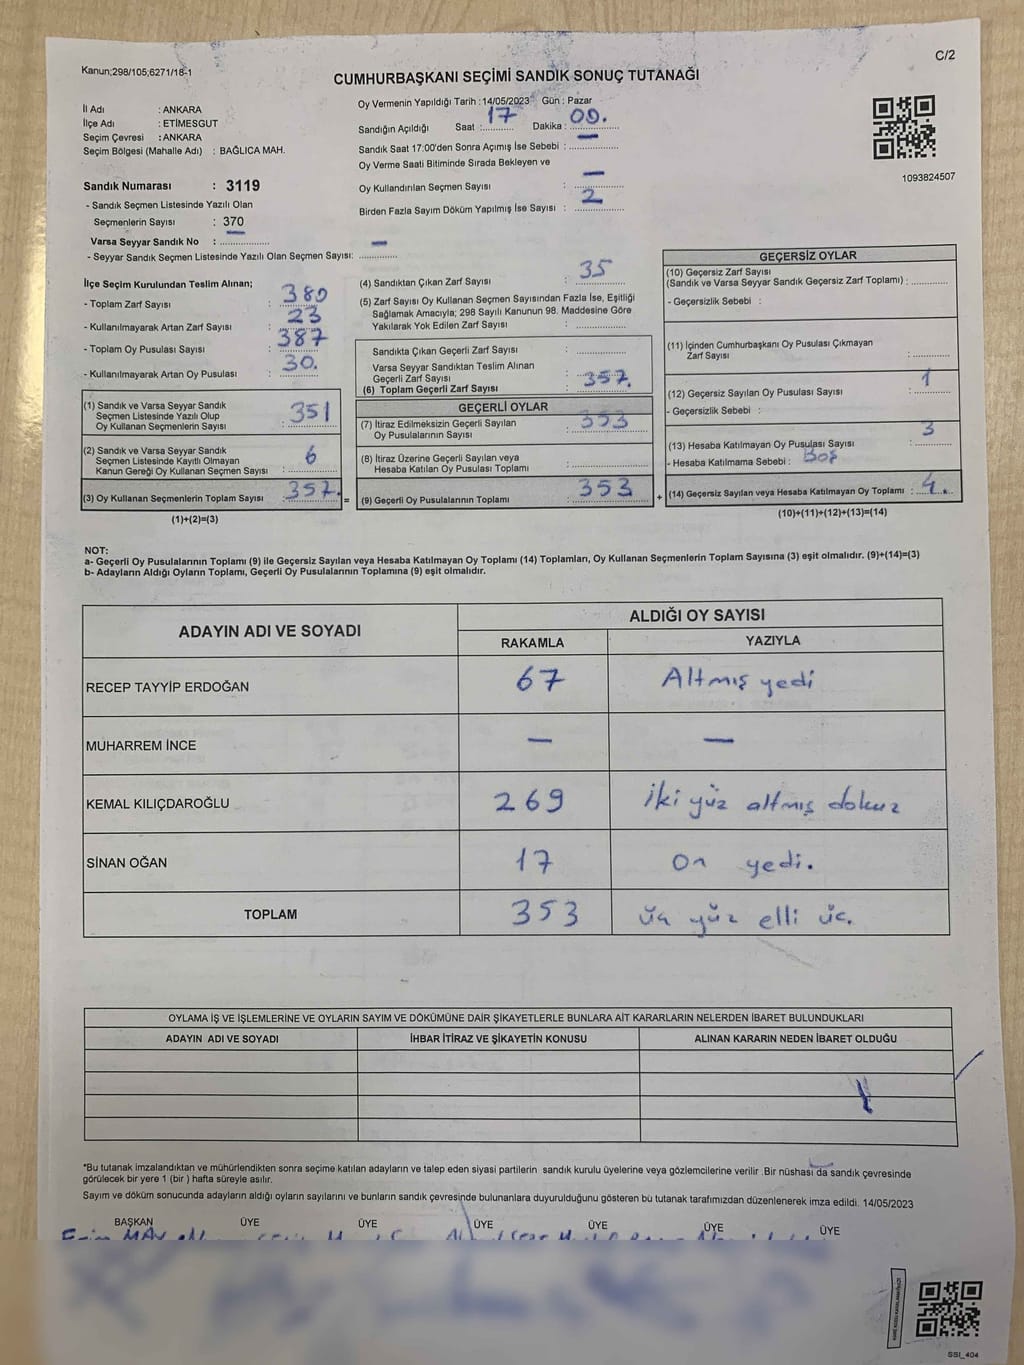 Kanun;298/105;6271/18-1
C/2
CUMHURBAŞKANI SEÇİMİ SANDIK SONUÇ TUTANAĞI
İl Adı : ANKARA
İlçe Adı : ETİMESGUT
Seçim Çevresi : ANKARA
Seçim Bölgesi (Mahalle Adı) : BAĞLICA MAH.
Sandık Numarası : 3119
- Sandık Seçmen Listesinde Yazılı Olan
Seçmenlerin Sayısı : 370
Varsa Seyyar Sandık No : –
- Seyyar Sandık Seçmen Listesinde Yazılı Olan Seçmen Sayısı: –
Oy Vermenin Yapıldığı Tarih : 14/05/2023 Gün : Pazar
Sandığın Açıldığı Saat : 17 Dakika : 00.
Sandık Saat 17:00'den Sonra Açımış İse Sebebi : –
Oy Verme Saati Bitiminde Sırada Bekleyen ve
Oy Kullandırılan Seçmen Sayısı : –
Birden Fazla Sayım Döküm Yapılmış İse Sayısı : 2
1093824507
İlçe Seçim Kurulundan Teslim Alınan;
- Toplam Zarf Sayısı : 380
- Kullanılmayarak Artan Zarf Sayısı : 23
- Toplam Oy Pusulası Sayısı : 387
- Kullanılmayarak Artan Oy Pusulası : 30.
(1) Sandık ve Varsa Seyyar Sandık
Seçmen Listesinde Yazılı Olup
Oy Kullanan Seçmenlerin Sayısı : 351
(2) Sandık ve Varsa Seyyar Sandık
Seçmen Listesinde Kayıtlı Olmayan
Kanun Gereği Oy Kullanan Seçmen Sayısı : 6
(3) Oy Kullanan Seçmenlerin Toplam Sayısı : 357. =
(1)+(2)=(3)
(4) Sandıktan Çıkan Zarf Sayısı : 35
(5) Zarf Sayısı Oy Kullanan Seçmen Sayısından Fazla İse, Eşitliği
Sağlamak Amacıyla; 298 Sayılı Kanunun 98. Maddesine Göre
Yakılarak Yok Edilen Zarf Sayısı :
Sandıkta Çıkan Geçerli Zarf Sayısı :
Varsa Seyyar Sandıktan Teslim Alınan
Geçerli Zarf Sayısı :
(6) Toplam Geçerli Zarf Sayısı : 357.
GEÇERLİ OYLAR
(7) İtiraz Edilmeksizin Geçerli Sayılan
Oy Pusulalarının Sayısı : 353
(8) İtiraz Üzerine Geçerli Sayılan veya
Hesaba Katılan Oy Pusulası Toplamı :
(9) Geçerli Oy Pusulalarının Toplamı : 353 +
GEÇERSİZ OYLAR
(10) Geçersiz Zarf Sayısı
(Sandık ve Varsa Seyyar Sandık Geçersiz Zarf Toplamı) :
- Geçersizlik Sebebi :
(11) İçinden Cumhurbaşkanı Oy Pusulası Çıkmayan
Zarf Sayısı :
(12) Geçersiz Sayılan Oy Pusulası Sayısı : 1
- Geçersizlik Sebebi :
(13) Hesaba Katılmayan Oy Pusulası Sayısı : 3
- Hesaba Katılmama Sebebi : Boş
(14) Geçersiz Sayılan veya Hesaba Katılmayan Oy Toplamı : 4.
(10)+(11)+(12)+(13)=(14)
NOT:
a- Geçerli Oy Pusulalarının Toplamı (9) ile Geçersiz Sayılan veya Hesaba Katılmayan Oy Toplamı (14) Toplamları, Oy Kullanan Seçmenlerin Toplam Sayısına (3) eşit olmalıdır. (9)+(14)=(3)
b- Adayların Aldığı Oyların Toplamı, Geçerli Oy Pusulalarının Toplamına (9) eşit olmalıdır.
ADAYIN ADI VE SOYADI ALDIĞI OY SAYISI
RAKAMLA YAZIYLA
RECEP TAYYİP ERDOĞAN 67 Altmış yedi
MUHARREM İNCE – –
KEMAL KILIÇDAROĞLU 269 İki yüz altmış dokuz
SİNAN OĞAN 17 on yedi.
TOPLAM 353 üç yüz elli üç.
OYLAMA İŞ VE İŞLEMLERİNE VE OYLARIN SAYIM VE DÖKÜMÜNE DAİR ŞİKAYETLERLE BUNLARA AİT KARARLARIN NELERDEN İBARET BULUNDUKLARI
ADAYIN ADI VE SOYADI İHBAR İTİRAZ VE ŞİKAYETİN KONUSU ALINAN KARARIN NEDEN İBARET OLDUĞU
*Bu tutanak imzalandıktan ve mühürlendikten sonra seçime katılan adayların ve talep eden siyasi partilerin sandık kurulu üyelerine veya gözlemcilerine verilir .Bir nüshası da sandık çevresinde
görülecek bir yere 1 (bir ) hafta süreyle asılır.
Sayım ve döküm sonucunda adayların aldığı oyların sayılarını ve bunların sandık çevresinde bulunanlara duyurulduğunu gösteren bu tutanak tarafımızdan düzenlenerek imza edildi. 14/05/2023
BAŞKAN ÜYE ÜYE ÜYE ÜYE ÜYE ÜYE
SSI_404